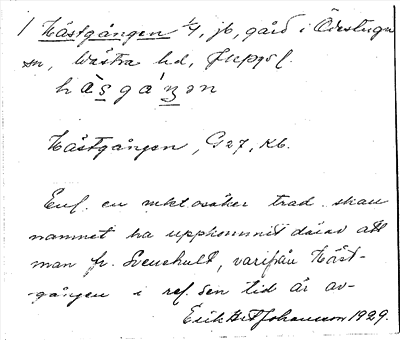 1 Hästgången 1/4, jb, gård i Ödestugu
sn, Västra hd, Jkpgs l.
hàsgáŋən
Hästgången, G27, Kb.
Enl. en mkt osäker trad. skall
namnet ha uppkommit därav att
man fr. Svenshult, varifrån Häst-
gången i ref. sen tid är av-
Erik Hrt Johansson 1929.